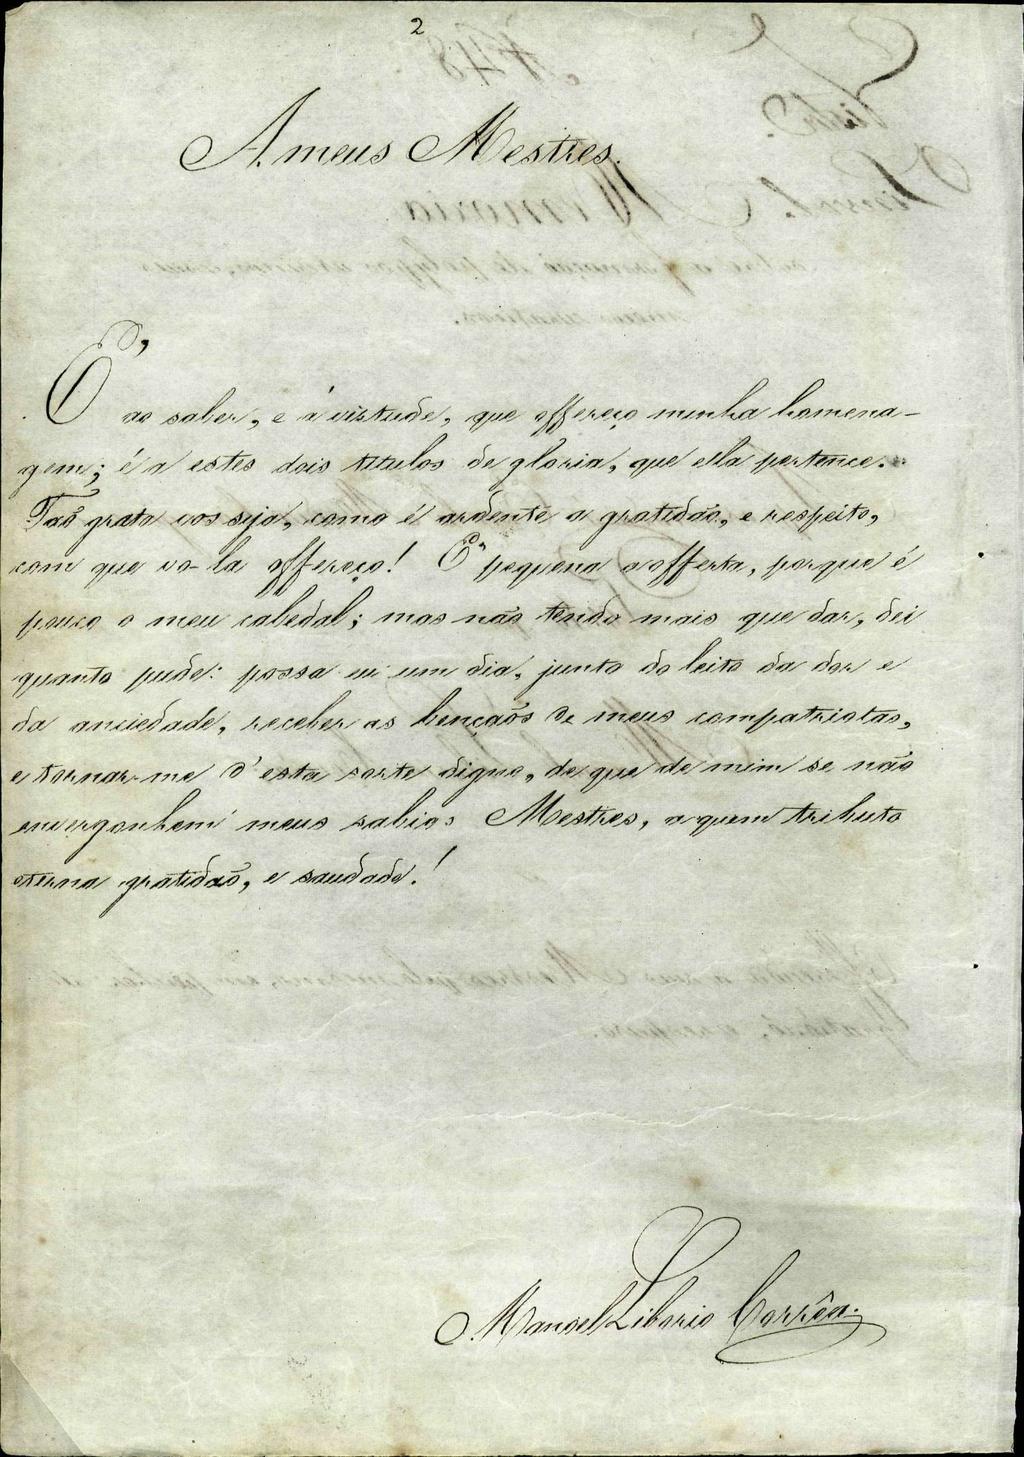 2
A meus Mestres.
É ao saber, e á virtude, que offereço minha homena-
gem; é a estes dois titulos de gloria, que ella pertence.
Taõ grata vos seja, como é ardente a gratidaõ, e respeito,
com que vo-la offereço! É pequena a offerta, porque é
pouco o meu cabedal; mas naõ tendo mais que dar, dei
quanto pude: possa eu um dia, junto do leito da dor e
da anciedade, receber as bençaõs de meus compatriotas,
e tornar-me d'esta sorte digno, de que de mim se naõ
envergonhem meus sabios Mestres, a quem tributo
eterna gratidaõ, e saudade!
Manoel Liborio Corrêa.